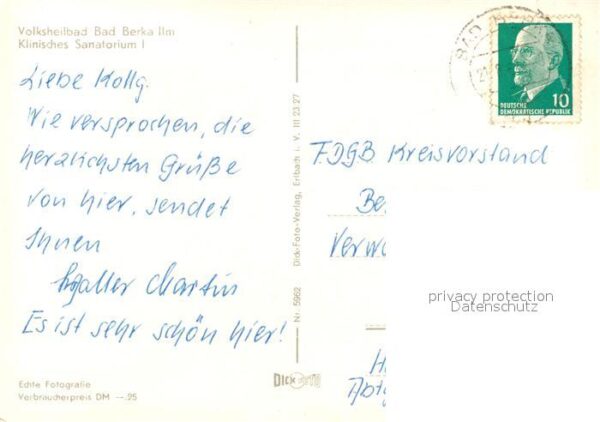 Volksheilbad Bad Berka Ilm
Klinisches Sanatorium I
Liebe Kollg.
Wie versprochen, die
herzlichsten Grüße
von hier, sendet
Ihnen
Martin
Es ist sehr schön hier!
Echte Fotografie
Verbraucherpreis DM —.25
Nr. 5952 Dick-Foto-Verlag, Erlbach i. V. III 23 27
Dick
BAD
10
DEUTSCHE
DEMOKRATISCHE REPUBLIK
FDGB Kreisvorstand
Be
Verw
privacy protection
Datenschutz
H
Abt